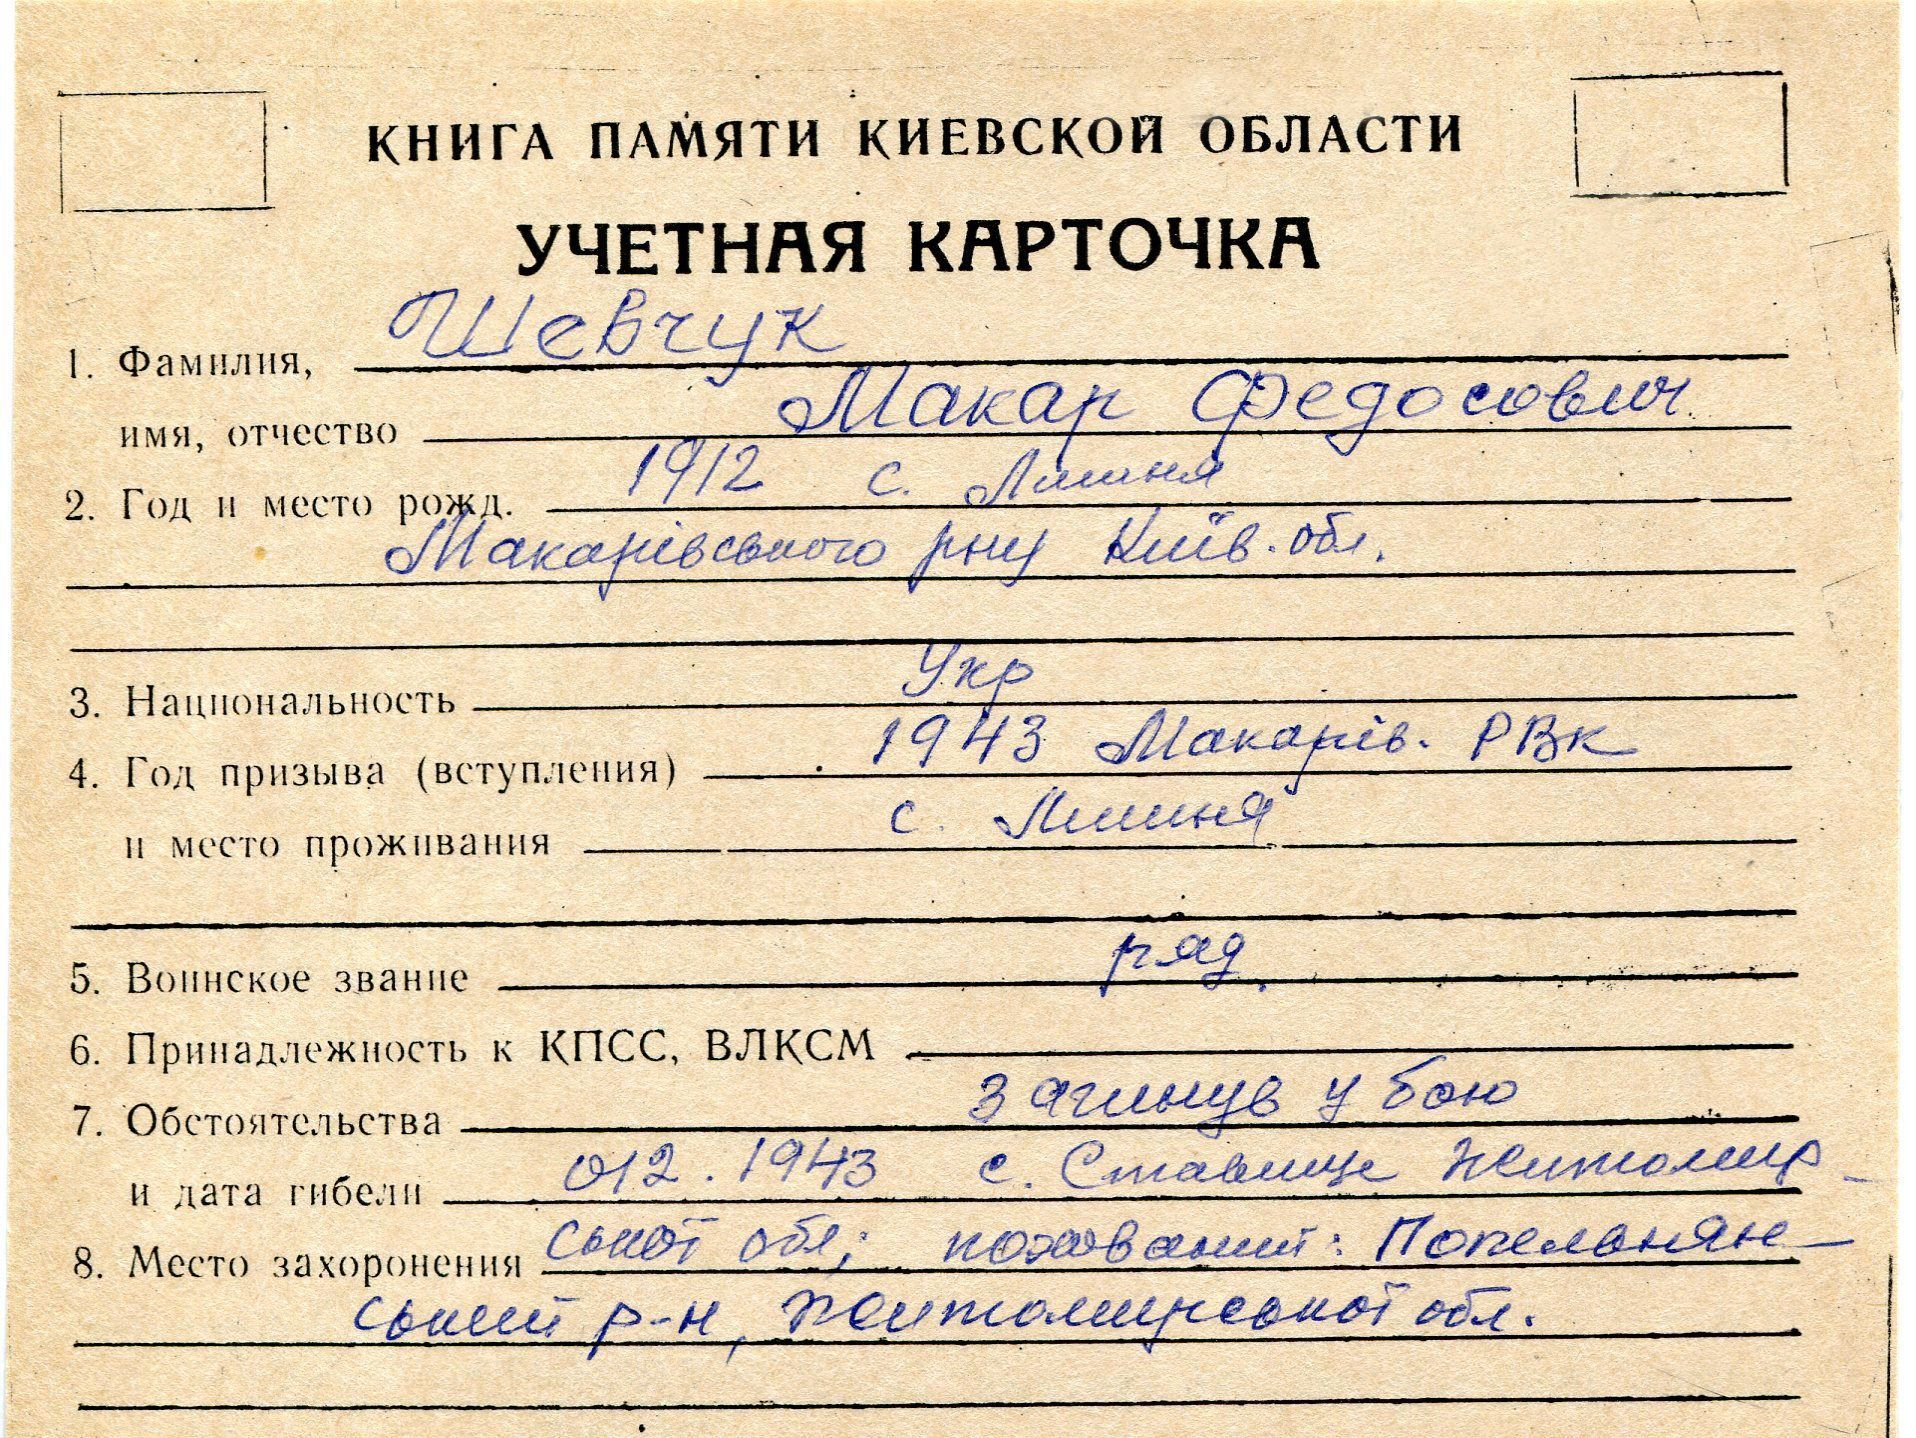 КНИГА ПАМЯТИ КИЕВСКОЙ ОБЛАСТИ
УЧЕТНАЯ КАРТОЧКА
Шевчук
1. Фамилия,
Макар Федосович
имя, отчество
1912 с. Липиня
2. Год и место рожд.
Макарівського рну Київ. обл.
Укр
3. Национальность
1943 Макарів. РВк
4. Год призыва (вступления)
с. Липиня
и место проживания
ряд.
5. Воинское звание
6. Принадлежность к КПСС, ВЛКСМ
загинув у бою
7. Обстоятельства
012.1943 с. Ставище Житомир-
и дата гибели
ської обл; похований: Попельнян-
8. Место захоронения
ський р-н, Житомирської обл.